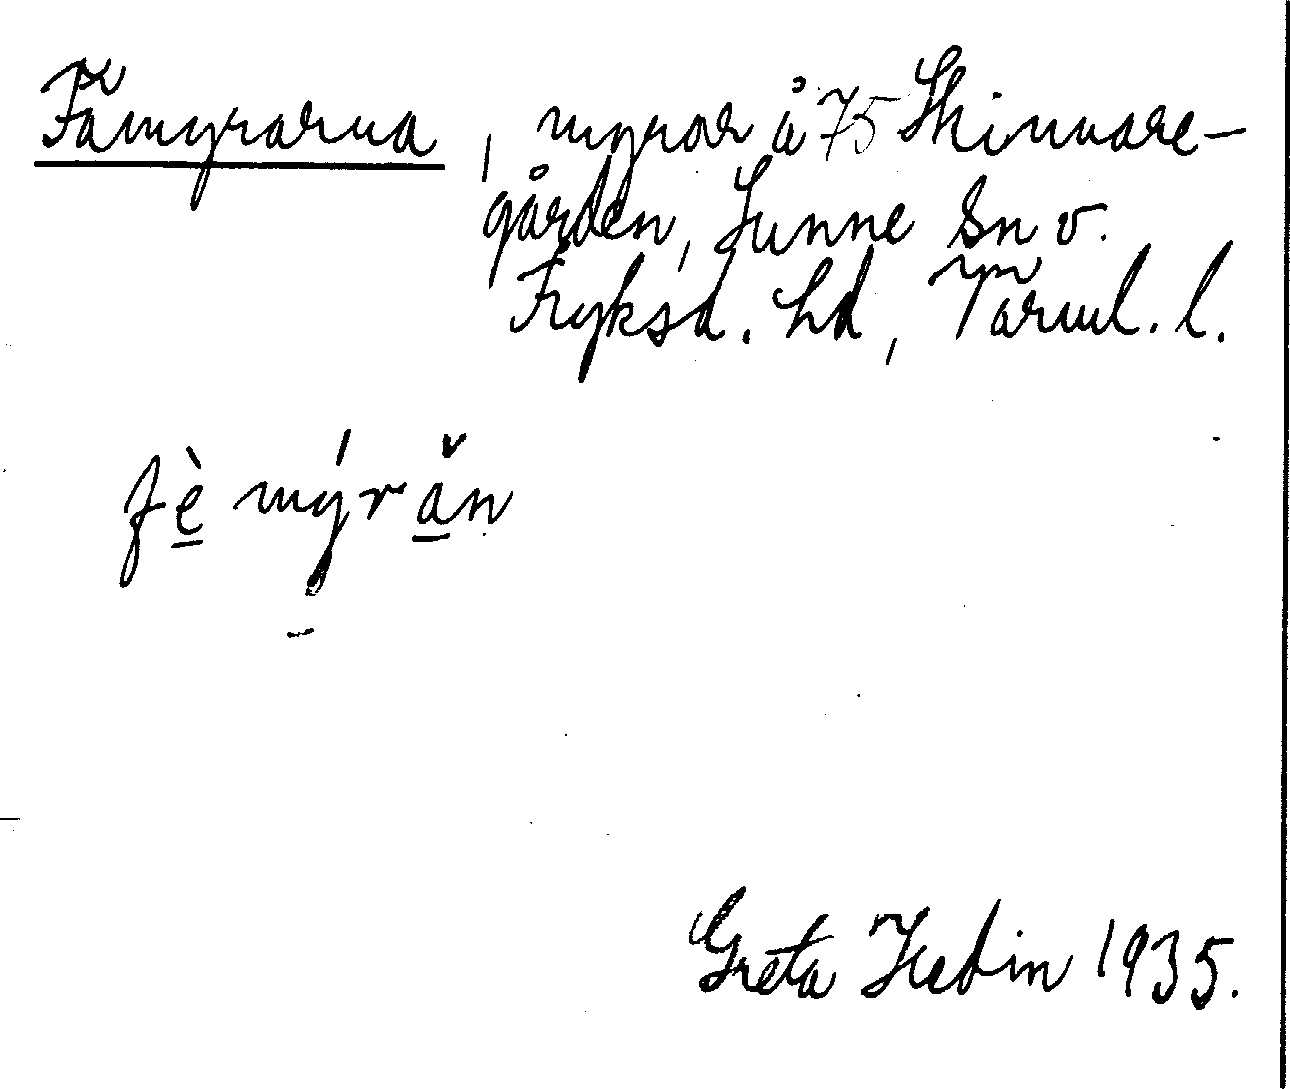 Fämyrarna, myrar å 75 Skinnare-
gården, Sunne Sn v.
Fryksd. hd, Värml. l.
fè mýrăn
Greta Hedin 1935.